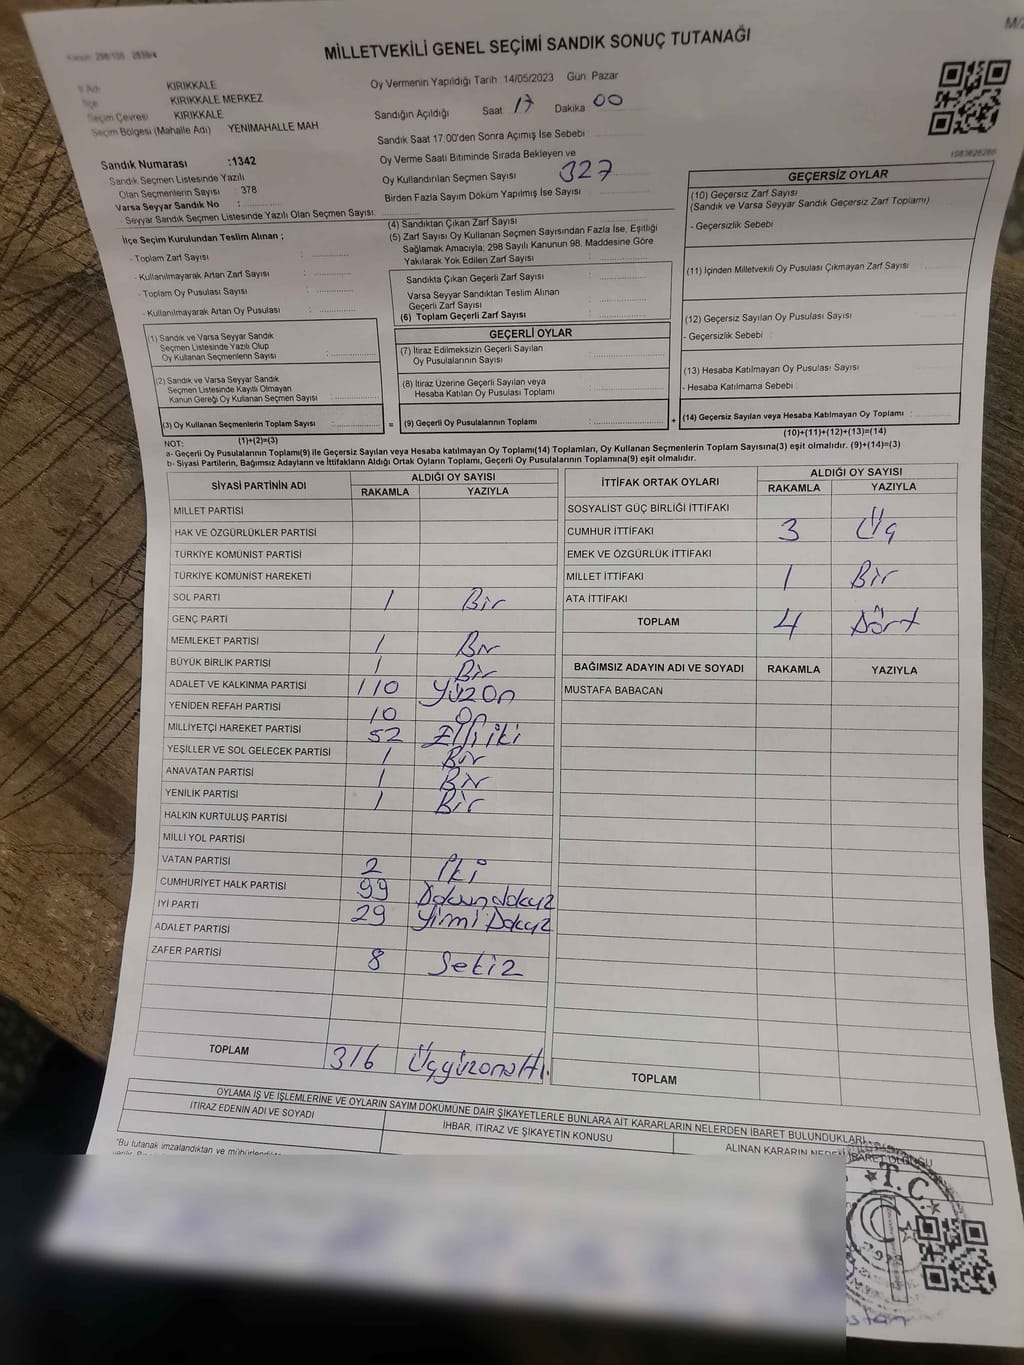 MİLLETVEKİLİ GENEL SEÇİMİ SANDIK SONUÇ TUTANAĞI
İl Adı KIRIKKALE
İlçe KIRIKKALE MERKEZ
Seçim Çevresi KIRIKKALE
Seçim Bölgesi (Mahalle Adı) YENİMAHALLE MAH
Oy Vermenin Yapıldığı Tarih 14/05/2023 Gün Pazar
Sandığın Açıldığı Saat 17 Dakika 00
Sandık Saat 17:00'den Sonra Açımış İse Sebebi
Oy Verme Saati Bitiminde Sırada Bekleyen ve
Oy Kullandırılan Seçmen Sayısı 327
Birden Fazla Sayım Döküm Yapılmış İse Sayısı
Sandık Numarası :1342
- Sandık Seçmen Listesinde Yazılı
Olan Seçmenlerin Sayısı 378
Varsa Seyyar Sandık No :
- Seyyar Sandık Seçmen Listesinde Yazılı Olan Seçmen Sayısı:
İlçe Seçim Kurulundan Teslim Alınan ;
- Toplam Zarf Sayısı :
- Kullanılmayarak Artan Zarf Sayısı :
- Toplam Oy Pusulası Sayısı :
- Kullanılmayarak Artan Oy Pusulası :
(1) Sandık ve Varsa Seyyar Sandık
Seçmen Listesinde Yazılı Olup
Oy Kullanan Seçmenlerin Sayısı :
(2) Sandık ve Varsa Seyyar Sandık
Seçmen Listesinde Kayıtlı Olmayan
Kanun Gereği Oy Kullanan Seçmen Sayısı :
(3) Oy Kullanan Seçmenlerin Toplam Sayısı :
(1)+(2)=(3)
(4) Sandıktan Çıkan Zarf Sayısı
(5) Zarf Sayısı Oy Kullanan Seçmen Sayısından Fazla İse, Eşitliği
Sağlamak Amacıyla; 298 Sayılı Kanunun 98. Maddesine Göre
Yakılarak Yok Edilen Zarf Sayısı :
Sandıkta Çıkan Geçerli Zarf Sayısı :
Varsa Seyyar Sandıktan Teslim Alınan
Geçerli Zarf Sayısı :
(6) Toplam Geçerli Zarf Sayısı :
GEÇERLİ OYLAR
(7) İtiraz Edilmeksizin Geçerli Sayılan
Oy Pusulalarının Sayısı :
(8) İtiraz Üzerine Geçerli Sayılan veya
Hesaba Katılan Oy Pusulası Toplamı :
= (9) Geçerli Oy Pusulalarının Toplamı : +
GEÇERSİZ OYLAR
(10) Geçersiz Zarf Sayısı
(Sandık ve Varsa Seyyar Sandık Geçersiz Zarf Toplamı)
- Geçersizlik Sebebi
(11) İçinden Milletvekili Oy Pusulası Çıkmayan Zarf Sayısı
(12) Geçersiz Sayılan Oy Pusulası Sayısı
- Geçersizlik Sebebi :
(13) Hesaba Katılmayan Oy Pusulası Sayısı
- Hesaba Katılmama Sebebi :
(14) Geçersiz Sayılan veya Hesaba Katılmayan Oy Toplamı :
(10)+(11)+(12)+(13)=(14)
NOT:
a- Geçerli Oy Pusulalarının Toplamı(9) ile Geçersiz Sayılan veya Hesaba katılmayan Oy Toplamı(14) Toplamları, Oy Kullanan Seçmenlerin Toplam Sayısına(3) eşit olmalıdır. (9)+(14)=(3)
b- Siyasi Partilerin, Bağımsız Adayların ve İttifakların Aldığı Ortak Oyların Toplamı, Geçerli Oy Pusulalarının Toplamına(9) eşit olmalıdır.
SİYASİ PARTİNİN ADI ALDIĞI OY SAYISI
RAKAMLA YAZIYLA
MİLLET PARTİSİ
HAK VE ÖZGÜRLÜKLER PARTİSİ
TÜRKİYE KOMÜNİST PARTİSİ
TÜRKİYE KOMÜNİST HAREKETİ
SOL PARTİ 1 Bir
GENÇ PARTİ
MEMLEKET PARTİSİ 1 Bir
BÜYÜK BİRLİK PARTİSİ 1 Bir
ADALET VE KALKINMA PARTİSİ 110 Yüzon
YENİDEN REFAH PARTİSİ 10 on
MİLLİYETÇİ HAREKET PARTİSİ 52 Elliiki
YEŞİLLER VE SOL GELECEK PARTİSİ 1 Bir
ANAVATAN PARTİSİ 1 Bir
YENİLİK PARTİSİ 1 Bir
HALKIN KURTULUŞ PARTİSİ
MİLLİ YOL PARTİSİ
VATAN PARTİSİ 2 İki
CUMHURİYET HALK PARTİSİ 99 Doksandokuz
İYİ PARTİ 29 Yirmi Dokuz
ADALET PARTİSİ
ZAFER PARTİSİ 8 Sekiz
TOPLAM 316 Üçyüzonaltı
İTTİFAK ORTAK OYLARI ALDIĞI OY SAYISI
RAKAMLA YAZIYLA
SOSYALİST GÜÇ BİRLİĞİ İTTİFAKI
CUMHUR İTTİFAKI 3 Üç
EMEK VE ÖZGÜRLÜK İTTİFAKI
MİLLET İTTİFAKI 1 Bir
ATA İTTİFAKI
TOPLAM 4 Dört
BAĞIMSIZ ADAYIN ADI VE SOYADI RAKAMLA YAZIYLA
MUSTAFA BABACAN
TOPLAM
OYLAMA İŞ VE İŞLEMLERİNE VE OYLARIN SAYIM DÖKÜMÜNE DAİR ŞİKAYETLERLE BUNLARA AİT KARARLARIN NELERDEN İBARET BULUNDUKLARI
İTİRAZ EDENİN ADI VE SOYADI
İHBAR, İTİRAZ VE ŞİKAYETİN KONUSU
ALINAN KARARIN
"Bu tutanak imzalandıktan ve
T.C.